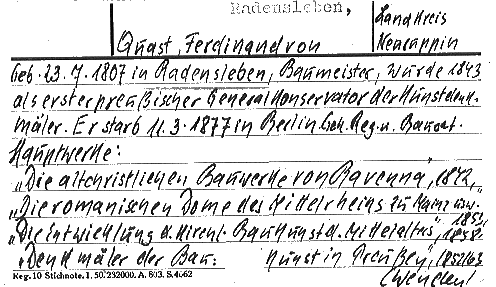 Radensleben,
Landkreis
Quast, Ferdinand von
Neuruppin
geb. 23.7.1807 in Radensleben, Baumeister, wurde 1843
als erster preußischer Generalkonservator der Kunstdenk-
mäler. Er starb 11.3.1877 in Berlin. Geh. Reg. u. Baurat.
Hauptwerke:
„Die altchristlichen Bauwerke von Ravenna", 1842,
„Die romanischen Dome des Mittelrheins zu Mainz usw.
1852,
„Die Entwicklung d. Kirchl. Baukunst d. Mittelalters", 1858.
„Denkmäler der Bau-
Kunst in Preußen", 1852/63
Reg. 10 Stichnote. I. 50. 232000. A. 603. S. 4062
(Wenden!